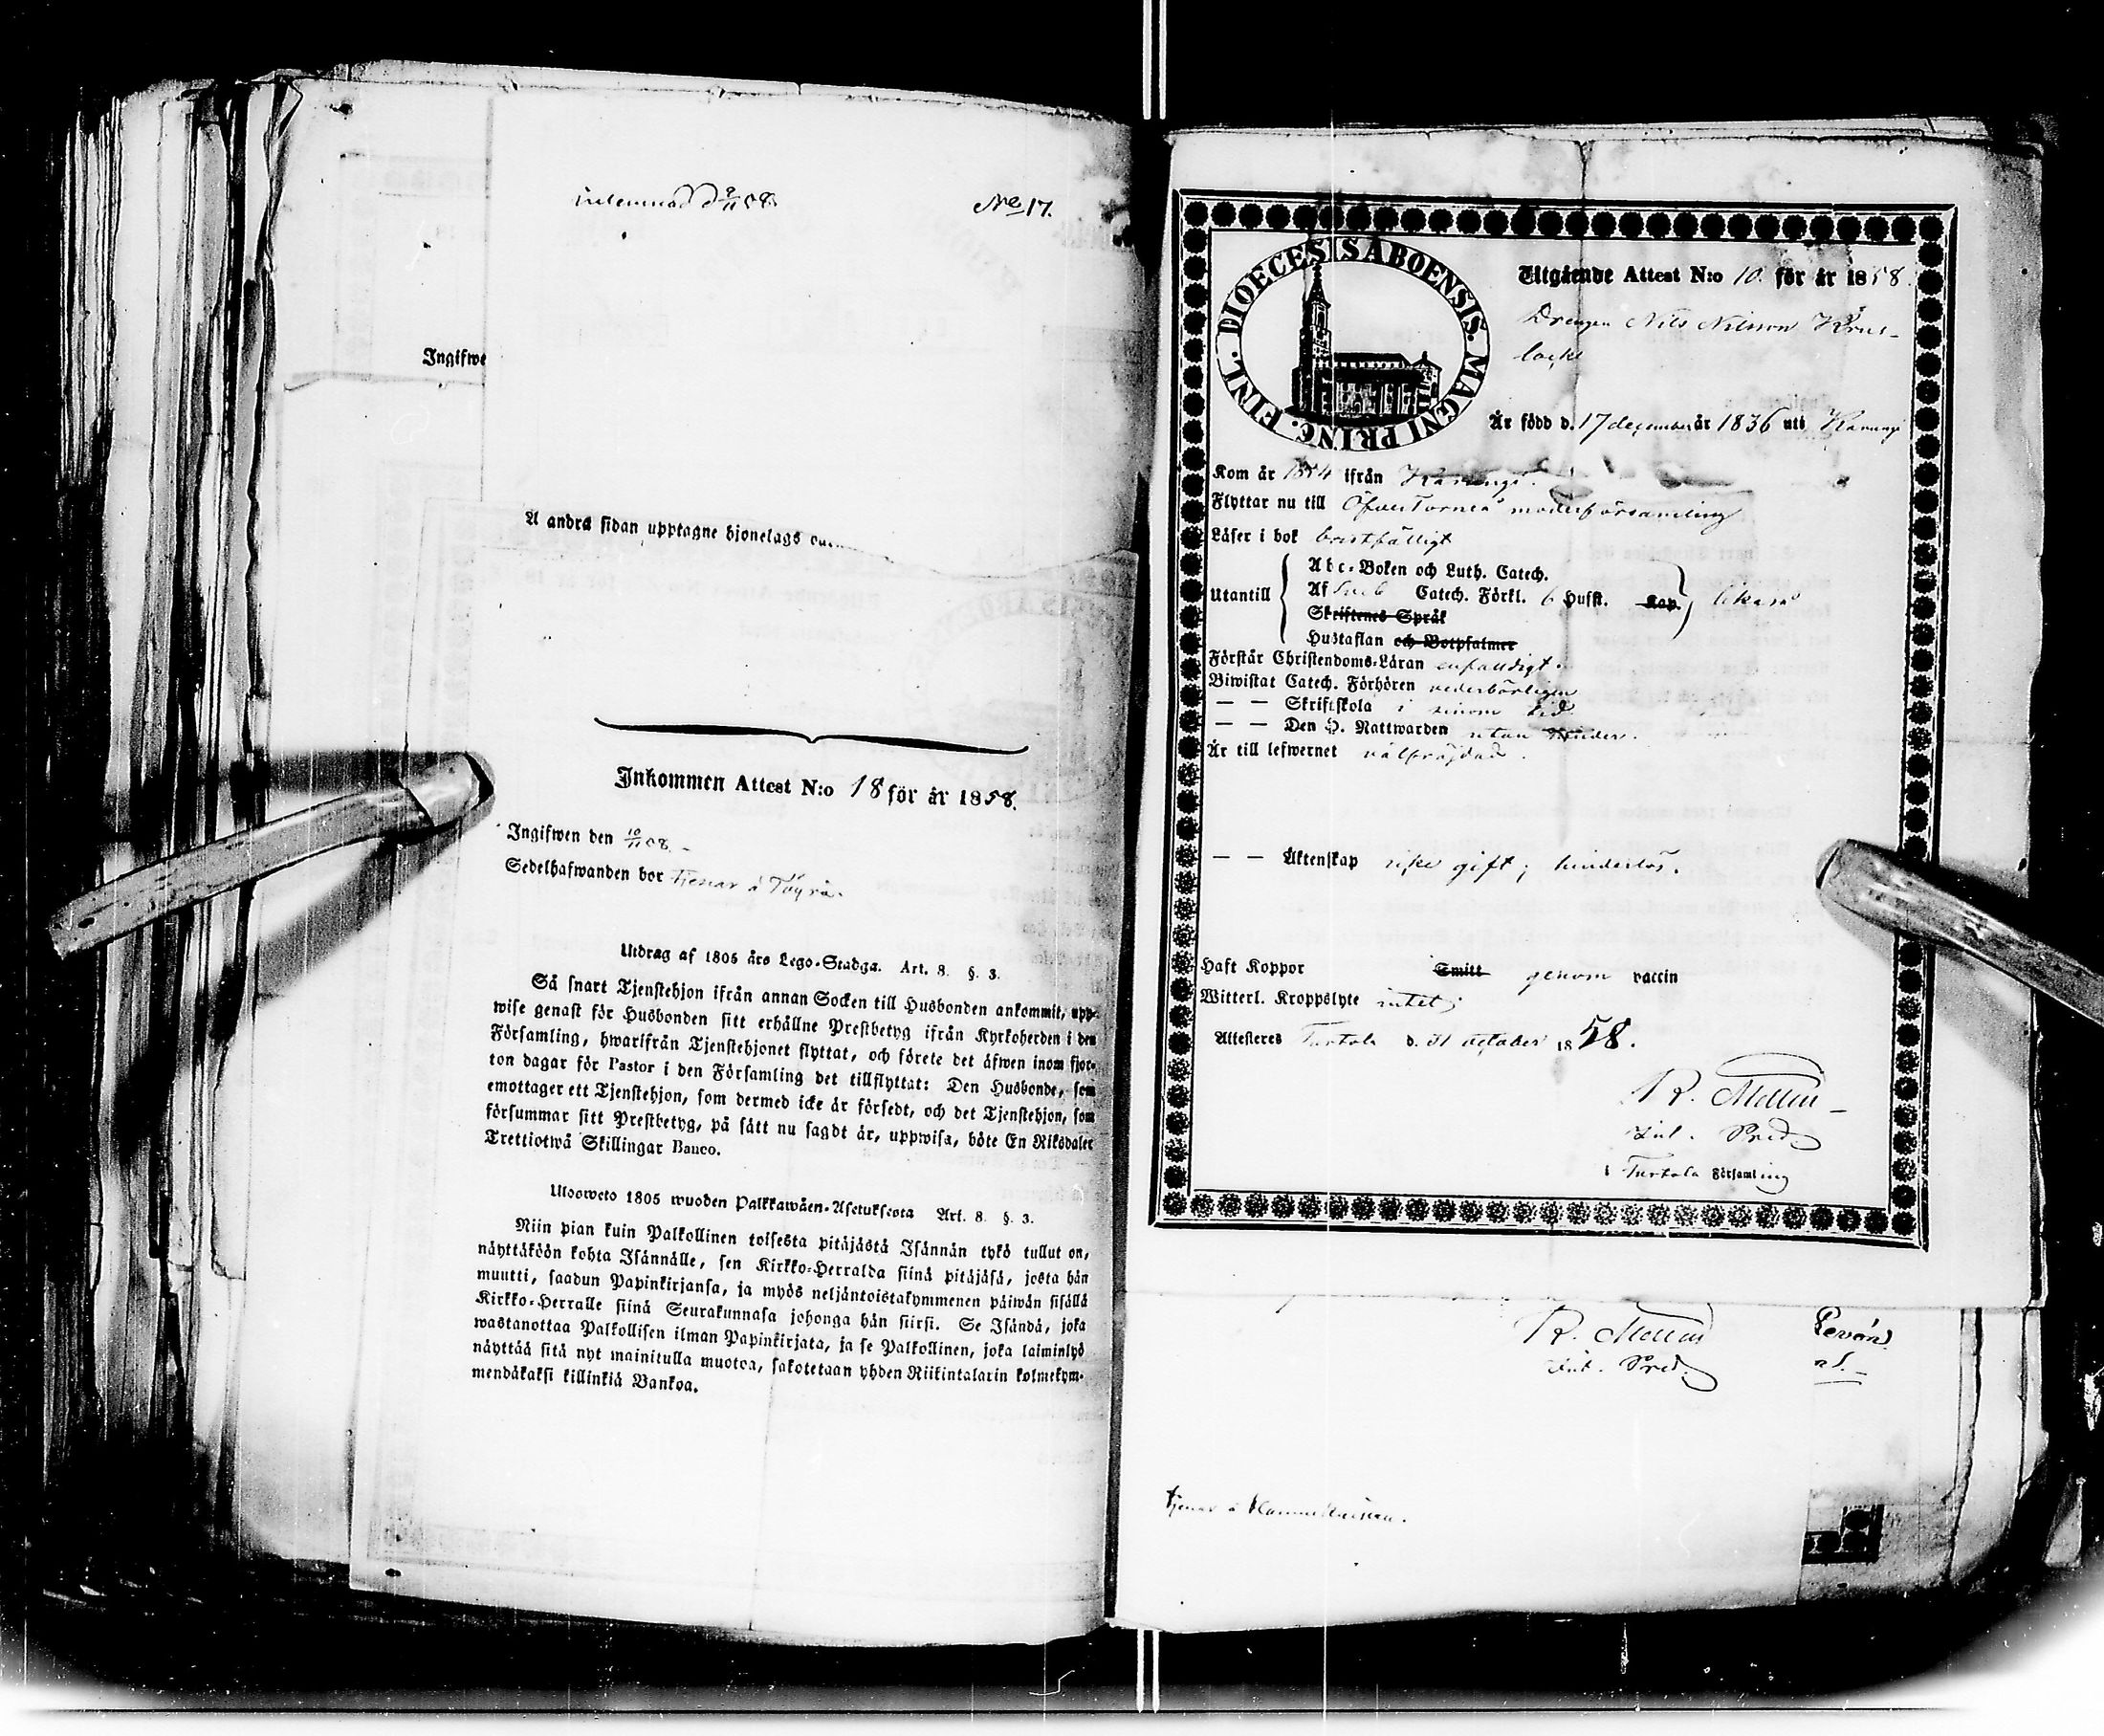 inlemnad d 9/11 58
No 17.
Ingifwe
Å andra sidan upptagne hjonelags
Inkommen Attest N:o 18 för år 1858.
Ingifwen den 10/11 58.
Sedelhafwanden bor tjenar å Töyrä.
Utdrag af 1805 års Lego-Stadga. Art. 8. §. 3.
Så snart Tjenstehjon ifrån annan Socken till Husbonden ankommit, upp-
wise genast för Husbonden sitt erhållne Prestbetyg ifrån Kyrkoherden i den
Församling, hwarifrån Tjenstehjonet flyttat, och förete det äfwen inom fjor-
ton dagar för Pastor i den Församling det tillflyttat: Den Husbonde, som
emottager ett Tjenstehjon, som dermed icke är försedt, och det Tjenstehjon, som
försummar sitt Prestbetyg, på sätt nu sagdt är, uppwisa, böte En Riksdaler
Trettiotwå Skillingar Banco.
Uloosweto 1805 wuoden Palkkawäen-Asetuksesta Art. 8. §. 3.
Niin pian kuin Palkollinen toisesta pitäjästä Isännän tykö tullut on,
näyttäköön kohta Isännälle, sen Kirkko-Herralda siinä pitäjäsä, josta hän
muutti, saadun Papinkirjansa, ja myös neljäntoistakymmenen päiwän sisällä
Kirkko-Herralle siinä Seurakunnasa johonga hän siirsi. Se Isändä, joka
wastanottaa Palkollisen ilman Papinkirjata, ja se Palkollinen, joka laiminlyö
näyttää sitä nyt mainitulla muotoa, sakotetaan yhden Riikintalarin kolmekym-
mendäkaksi killinkiä Bankoa.
FINL. DIOECESIS ÅBOENSIS. MAGNI PRINC.
Utgående Attest N:o 10. för år 1858.
Drengen Nils Nilsson
Är född d. 17 december år 1836 uti Karungi
Kom år 1854 ifrån Karungi.
Flyttar nu till ÖfverTorneå moderförsamling
Läser i bok bristfälligt
Utantill
Abc-Boken och Luth. Catech.
Af Catech. Förkl. 6 Hufst. Kap. likaså
Skriftenes Språk
Hustaflan och Botpsalmer
Förstår Christendoms-Läran enfaldigt
Biwistat Catech. Förhören vederbörligen
— — Skriftskola i sinom tid
— — Den H. Nattwarden utan hinder.
Är till lefwernet välfräjdad.
— — Äktenskap icke gift; hinderlös.
Haft Koppor Smitt genom vaccin
Witterl. Kroppslyte intet;
Attesteres Turtola d. 31 october 1858.
R. Mellin
Inl. Pred.
i Turtola Församling
R. Mellin
Inl. Pred.
tjenar å